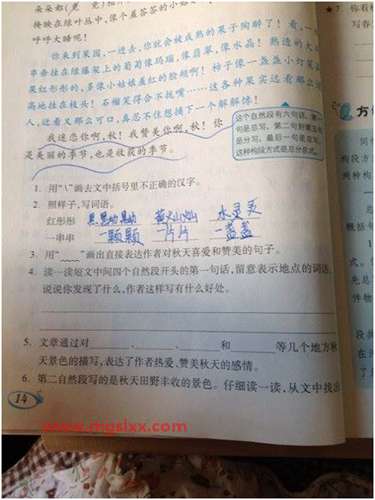 朵朵都(竞
挨挨在绿叶丛中,像个羞答答的小姑
呼呼大睡呢!
你来到果园,一进去,你就会被成熟的果子陶醉了!看,一
串垂挂在绿藤架上的葡萄像玛瑙,像翡翠,像水晶!熟透的大
果红彤彤的,多像小姑娘羞红的脸颊啊!柿子像一盏盏小灯笼
高地挂在枝头!石榴笑得合不拢嘴……这各种果实远看那么
人,近看又那么可口,真忍不住想摘下一个解解馋!
我迷恋你啊,秋!我赞美你啊,秋!你
是美丽的季节,也是收获的季节。
这个自然段有六句话,第一
句是总写,第二句到第五句
是分写,最后一句是总写,
这种构段方式是总分总式。
1. 用“\”画去文中括号里不正确的汉字。
2. 照样子,写词语。
红彤彤 黑黝黝 黄灿灿 水灵灵
一串串 一颗颗 一片片 一盏盏
3. 用“﹏﹏”画出直接表达作者对秋天喜爱和赞美的句子。
4. 读一读短文中间四个自然段开头的第一句话,留意表示地点的词语,
说说你发现了什么,作者这样写有什么好处。
5. 文章通过对____、____、____和____等几个地方秋
天景色的描写,表达了作者热爱、赞美秋天的感情。
6. 第二自然段写的是秋天田野丰收的景色。仔细读一读,从文中找出
14
www.mgslxx.com